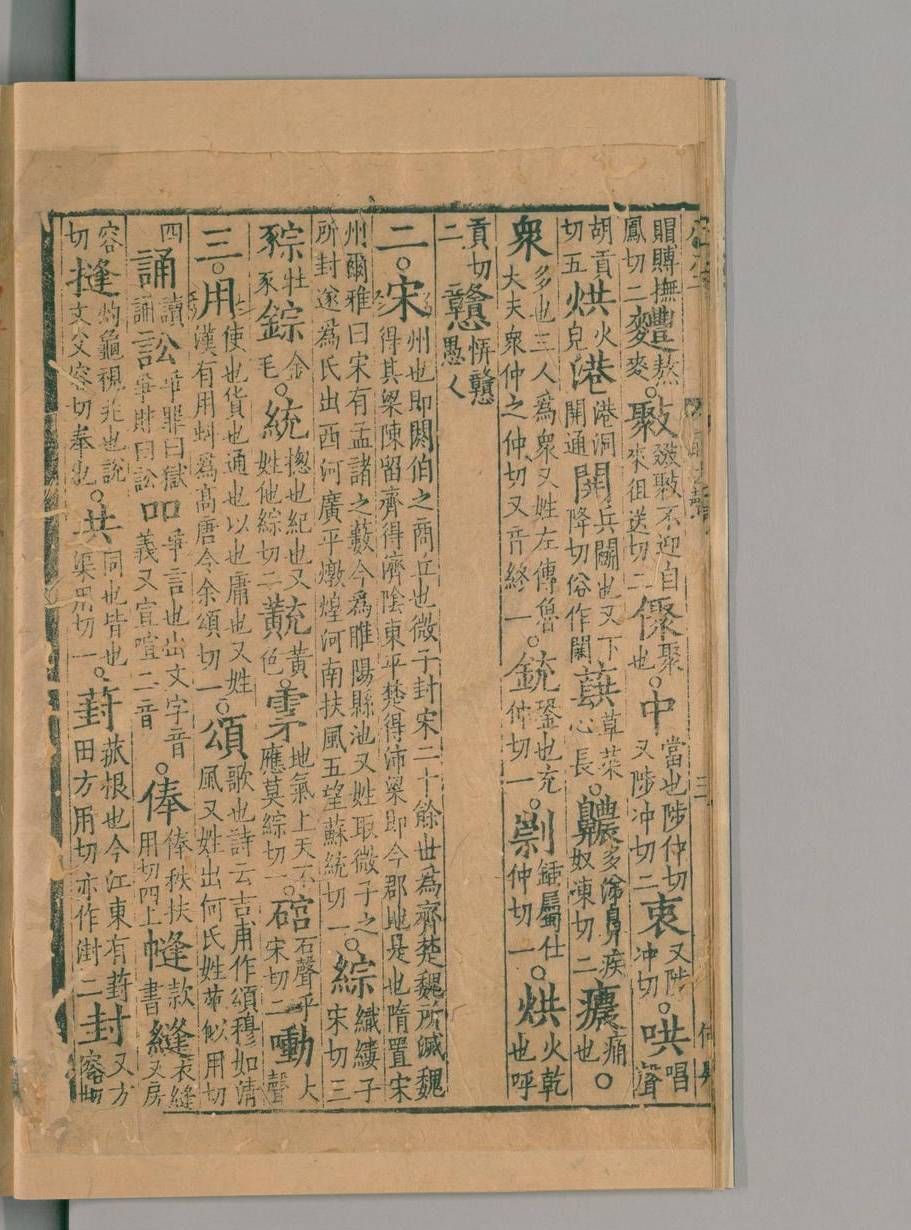 賵賵撫鳳切二麷熬麥。不迎自來徂送切二聚也。中當也陟仲切又陟冲切二衷又陟冲切。哄唱聲
胡貢切五烘火皃港港洞開通䦕兵鬭也又下降切俗作閧蕻草菜心長。齈多涕鼻疾奴凍切二癑痛也。
衆多也三人為衆又姓左傳魯大夫衆仲之仲切又音終一。銃銎也充仲切一。剬鍤屬仕仲切一。烘火乾也呼
貢切二戇愩戇愚人
二。宋州也即閼伯之商丘也微子封宋二十餘世為齊楚魏所滅魏得其梁陳留齊得濟陰東平楚得沛梁即今郡地是也隋置宋
州爾雅曰宋有孟諸之藪今為睢陽縣池又姓取微子之所封遂為氏出西河廣平燉煌河南扶風五望蘇統切一。綜織縷子宋切三
牡豕錝金毛。統揔也紀也又姓他綜切二黃色。雺地氣上天不應莫綜切一。石聲乎宋切二大聲
三。用使也貨也通也以也庸也又姓漢有用虯為高唐令余頌切一。頌歌也詩云吉甫作頌穆如清風又姓出何氏姓苑似用切
四誦讀誦訟爭罪曰獄爭財曰訟吅爭言也出文字音義又宣喧二音。俸俸秩扶用切四㡝上書款縫衣縫又房
容切摓灼龜視兆也說文父容切奉也。共同也皆也渠用切一。葑菰根也今江東有葑田方用切亦作湗二封又方容切
三